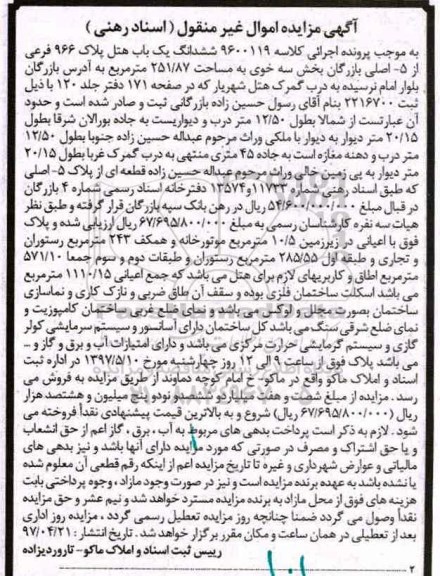 آگهی مزایده اموال غیر منقول ( اسناد رهنی )
به موجب پرونده اجرائی کلاسه ۹۶۰۰۱۱۹ ششدانگ یک باب هتل پلاک ۹۶۶ فرعی
از ۵- اصلی بازرگان بخش سه خوی به مساحت ۲۵۱/۸۷ مترمربع به آدرس بازرگان
بلوار امام نرسیده به درب گمرک هتل شهریار که در صفحه ۱۷۱ دفتر جلد ۱۲۰ با ذیل
ثبت ۲۲۱۶۷۰۰ بنام آقای رسول حسین زاده بازرگانی ثبت و صادر شده است و حدود
آن عبارتست از شمالا بطول ۱۲/۵۰ متر درب و دیواریست به جاده بورالان شرقا بطول
۲۰/۱۵ متر دیوار به دیوار با ملکی وراث مرحوم عبداله حسین زاده جنوبا بطول ۱۲/۵۰
متر درب و دهنه مغازه است به جاده ۴۵ متری منتهی به درب گمرک غربا بطول ۲۰/۱۵
متر دیوار به پی زمین خالی وراث مرحوم عبداله حسین زاده قطعه ای از پلاک ۵- اصلی
که طبق اسناد رهنی شماره ۱۱۷۳۳و۱۳۵۷۴ دفترخانه اسناد رسمی شماره ۴ بازرگان
در قبال مبلغ ریال در رهن بانک سپه بازرگان قرار گرفته و طبق نظر
هیات سه نفره کارشناسان رسمی به مبلغ ۶۷/۶۹۵/۸۰۰/۰۰۰ ریال ارزیابی شده و پلاک
فوق با اعیانی در زیرزمین ۱۰/۵ مترمربع موتورخانه و همکف ۲۴۳ مترمربع رستوران
و تجاری و طبقه اول ۲۸۵/۵۵ مترمربع رستوران و طبقات دوم و سوم جمعا ۵۷۱/۱۰
مترمربع اطاق و کاربریهای لازم برای هتل می باشد که جمع اعیانی ۱۱۱۰/۱۵ مترمربع
می باشد اسکلت ساختمان فلزی بوده و سقف آن طاق ضربی و نازک کاری و نماسازی
ساختمان بصورت مجلل و لوکس می باشد و نمای ضلع غربی ساختمان کامپوزیت و
نمای ضلع شرقی سنگ می باشد کل ساختمان دارای آسانسور و سیستم سرمایشی کولر
گازی و سیستم گرمایشی حرارت مرکزی می باشد و دارای امتیازات آب و برق و گاز و -
می باشد پلاک فوق از ساعت ۹ الی ۱۲ روز چهارشنبه مورخ ۱۳۹۷/۵/۱۰ در اداره ثبت
اسناد و املاک ماکو واقع در ماکو- خ امام کوچه دماوند از طریق مزایده به فروش می
رسد . مزایده از مبلغ شصت و هفت میلیارد و ششصد و نود و پنج میلیون و هشتصد هزار
ریال (۶۷/۶۹۵/۸۰۰/۰۰۰ ریال) شروع و به بالاترین قیمت پیشنهادی نقداً فروخته می
شود . لازم به ذکر است پرداخت بدهی های مربوط به آب ، برق ، گاز اعم از حق انشعاب
و یا حق اشتراک و مصرف در صورتی که مورد مزایده دارای آنها باشد و نیز بدهی های
مالیاتی و عوارض شهرداری و غیره تا تاریخ مزایده اعم از اینکه رقم قطعی آن معلوم شده
یا نشده باشد به عهده برنده مزایده است و نیز در صورت وجود مازاد ، وجوه پرداختی بابت
هزینه های فوق از محل مازاد به برنده مزایده مسترد خواهد شد و نیم عشر و حق مزایده
نقداً وصول می گردد ضمنا چنانچه روز مزایده تعطیل رسمی گردد ، مزایده روز اداری
بعد از تعطیلی در همان ساعت و مکان مقرر برگزار خواهد شد . تاریخ انتشار : ۹۷/۰۴/۲۱
رییس ثبت اسناد و املاک ماکو- تاروردیزاده
۲